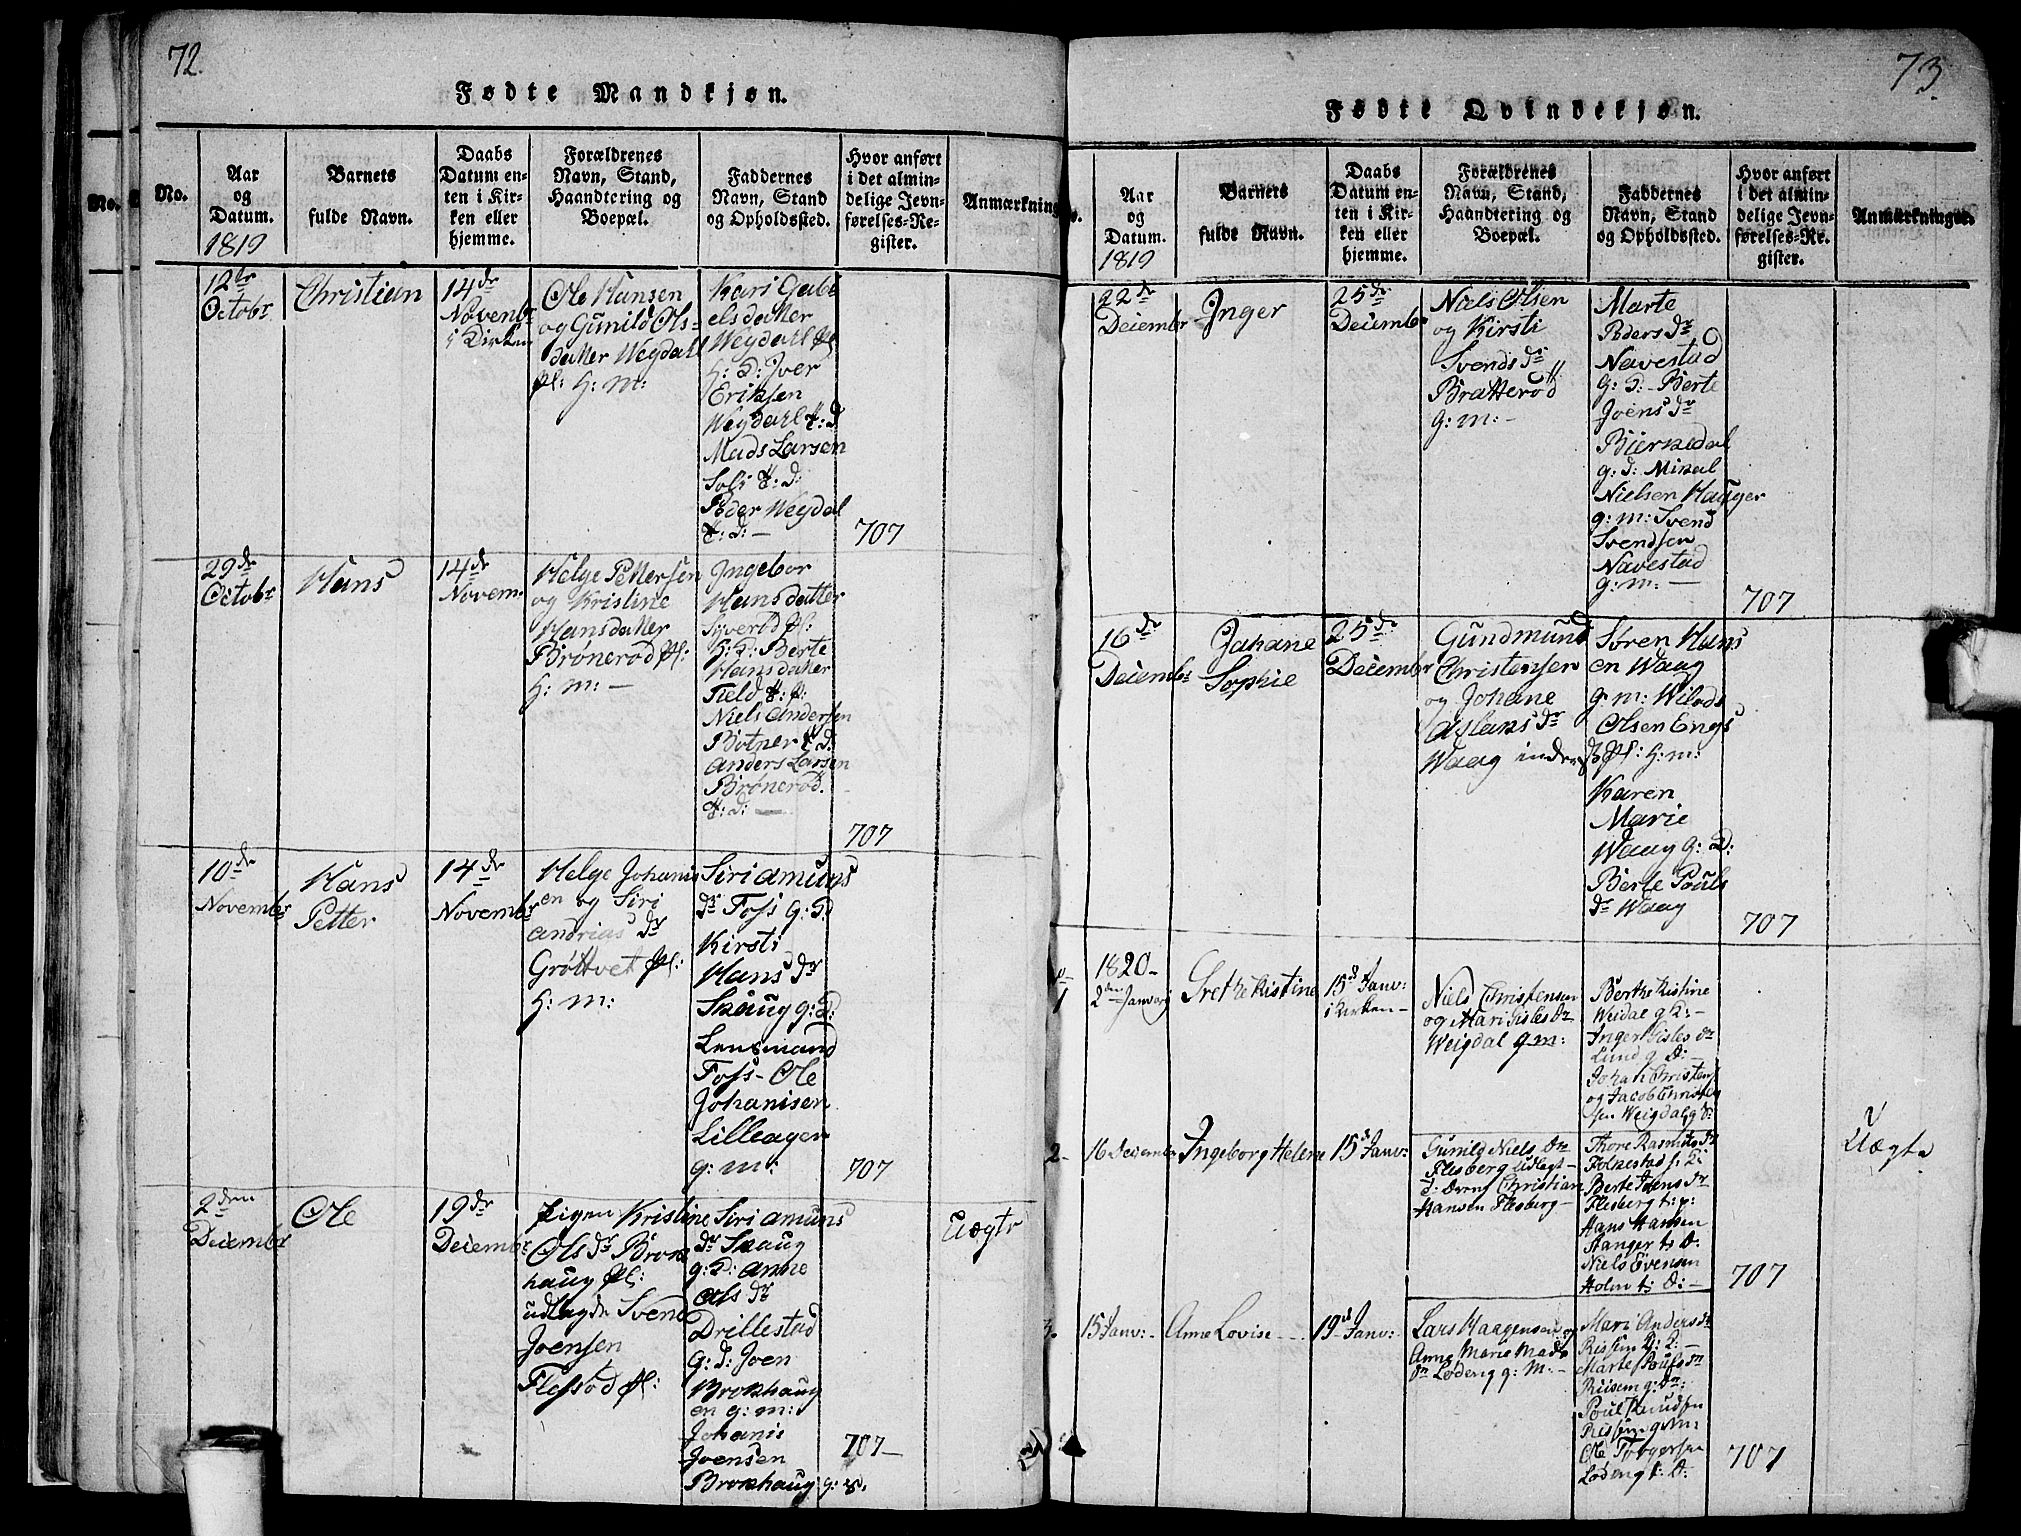 72.
Fødte Mandkjøn.
No.
No.
Aar
og
Datum.
1819
Barnets
fulde Navn.
Daabs
Datum en-
ten i Kir-
ken eller
hjemme.
Forældrenes
Navn, Stand,
Haandtering og
Boepæl.
Faddernes
Navn, Stand
og Opholdssted.
Hvor anført
i det almin-
delige Jevn-
førelses-Re-
gister.
Anmærkning
12te
Octobr
Christian
14de
Novenbr
i Kirken
Ole Hansen
og Gunild Ols-
datter Weydahl
pl: H: m:
Kari Gabri
elsdatter
Weydahl pl
H: D: Iver
Eriksen
Weydahl t: d
Mads Larsen
t: d:
Peder Weydal
t: d: —
707
29de
Octobr
Hans
14de
Novem.
Helge Pettersen
og Kristine
Hansdatter
Brönerod pl:
H: m: —
Ingebor
Hansdatter
Syverød pl:
H: D: Berte
Hansdatter
Field t: p:
Niels Andersen
Botner t: d:
Anders Larsen
Brönerod.
t: d: —
707
10de
Novembr
Hans
Petter
14de
Novembr
Helge Johanis
en og Siri
Andrias dr
Gröttvet pl:
H: m:
Siri Amuns
dr Foss G: D
Kirsti
Hans dr
Skaug g: D:
Lensmand
Foss - Ole
Johanisen
Lilleager
g: m:
707
2den
Deiembr
Ole
19de
Deiembr
Pigen Kristine
Ols dr Brok
haug pl:
udlagde Svend
Joensen
Flessød pl:
Siri Amuns
dr Skaug
g: D: Anne
Ols dr
Drillestad
G: d: Joen
Brokhaug
en g: m:
Johanis
Joensen
Brokhaug g: d.
707—
Uægte
73
Fødte Qvindekjøn.
Aar
og
Datum.
1819
Barnets
fulde Navn.
Daabs
Datum en-
ten i Kir-
ken eller
hjemme.
Forældrenes
Navn, Stand,
Haandtering og
Boepæl.
Faddernes
Navn, Stand
og Opholdssted.
Hvor anført
i det almin-
delige Jevn-
førelses-Re-
gister.
Anmærkninger.
22de
Deiembr
Inger
25de
Deiembr
Niels Olsen
og Kirsti
Svends dr
Bratterød
g: m: —
Marte
Peders dr
Navestad
G: D: Berte
Joens dr
Bierkedal
g: d: Mikal
Nielsen Haugger
g: m: Svend
Svendsen
Navestad
g: m: —
707
16de
Deiembr
Johane
Sophie
25de
Deiembr
Gundmund
Christensen
og Johane
Aslans dr
Waag inderst
Søren Hans
en Waag
g: m: Wilads
Olsen Engs
pl: H: m:
Karen
Marie
Waag g: D:
Berte Pouls
dr Waag
707
1
1820—
2den Januarj
Grethe Kistine
15d Janv:
i Kirken —
Niels Christensen
og Mari Gisles dr
Weigdal g m:
Berthe Kistine
Weidal g D: —
Inger Gisles dr
Lund g D: —
Johan Christens
og Jacob Christen
sen Weigdal g d:
2-
16 Deiember
Ingeborg Helene
15d Janv:
Gunild Niels dr
Flesberg udlagt —
d: Dreng Christian
Hansen Flesberg —
Thore Rasmus dr
Folkestad f: D:
Berte Jdens dr
Flesberg t: p:
Hans Hansen
Stanger t: D:
Niels Evensen
Holm t: D: —
707
Uægte
3.
15 Janv: —
Anne Lovise —
19d Janv:
Lars Haagensen og
Anne Marie Mads
dr Lødeng g: M: —
Mari Anders dr
Rissen D: D: —
Marte Pouls dr
Riisem g: Dr:
Poul Knudsen
Rissem g M:
Ole Torgersen
Lodeng t: D:
707